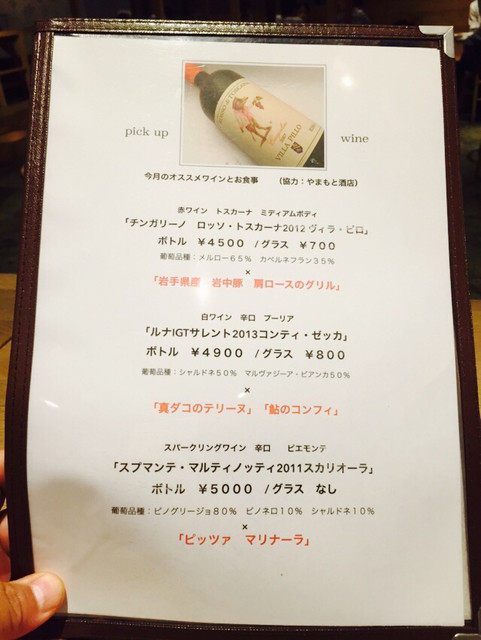 VILLA PILLO
pick up
wine
今月のオススメワインとお食事 (協力：やまもと酒店)
赤ワイン トスカーナ ミディアムボディ
「チンガリーノ ロッソ・トスカーナ2012 ヴィラ・ピロ」
ボトル ￥4500 /グラス ￥700
葡萄品種：メルロー65% カベルネフラン35%
×
「岩手県産 岩中豚 肩ロースのグリル」
白ワイン 辛口 プーリア
「ルナIGTサレント2013コンティ・ゼッカ」
ボトル ￥4900 /グラス ￥800
葡萄品種：シャルドネ50% マルヴァジーア・ビアンカ50%
×
「真ダコのテリーヌ」「鮎のコンフィ」
スパークリングワイン 辛口 ピエモンテ
「スプマンテ・マルティノッティ2011スカリオーラ」
ボトル ￥5000 /グラス なし
葡萄品種：ピノグリージョ80% ピノネロ10% シャルドネ10%
×
「ピッツァ マリナーラ」